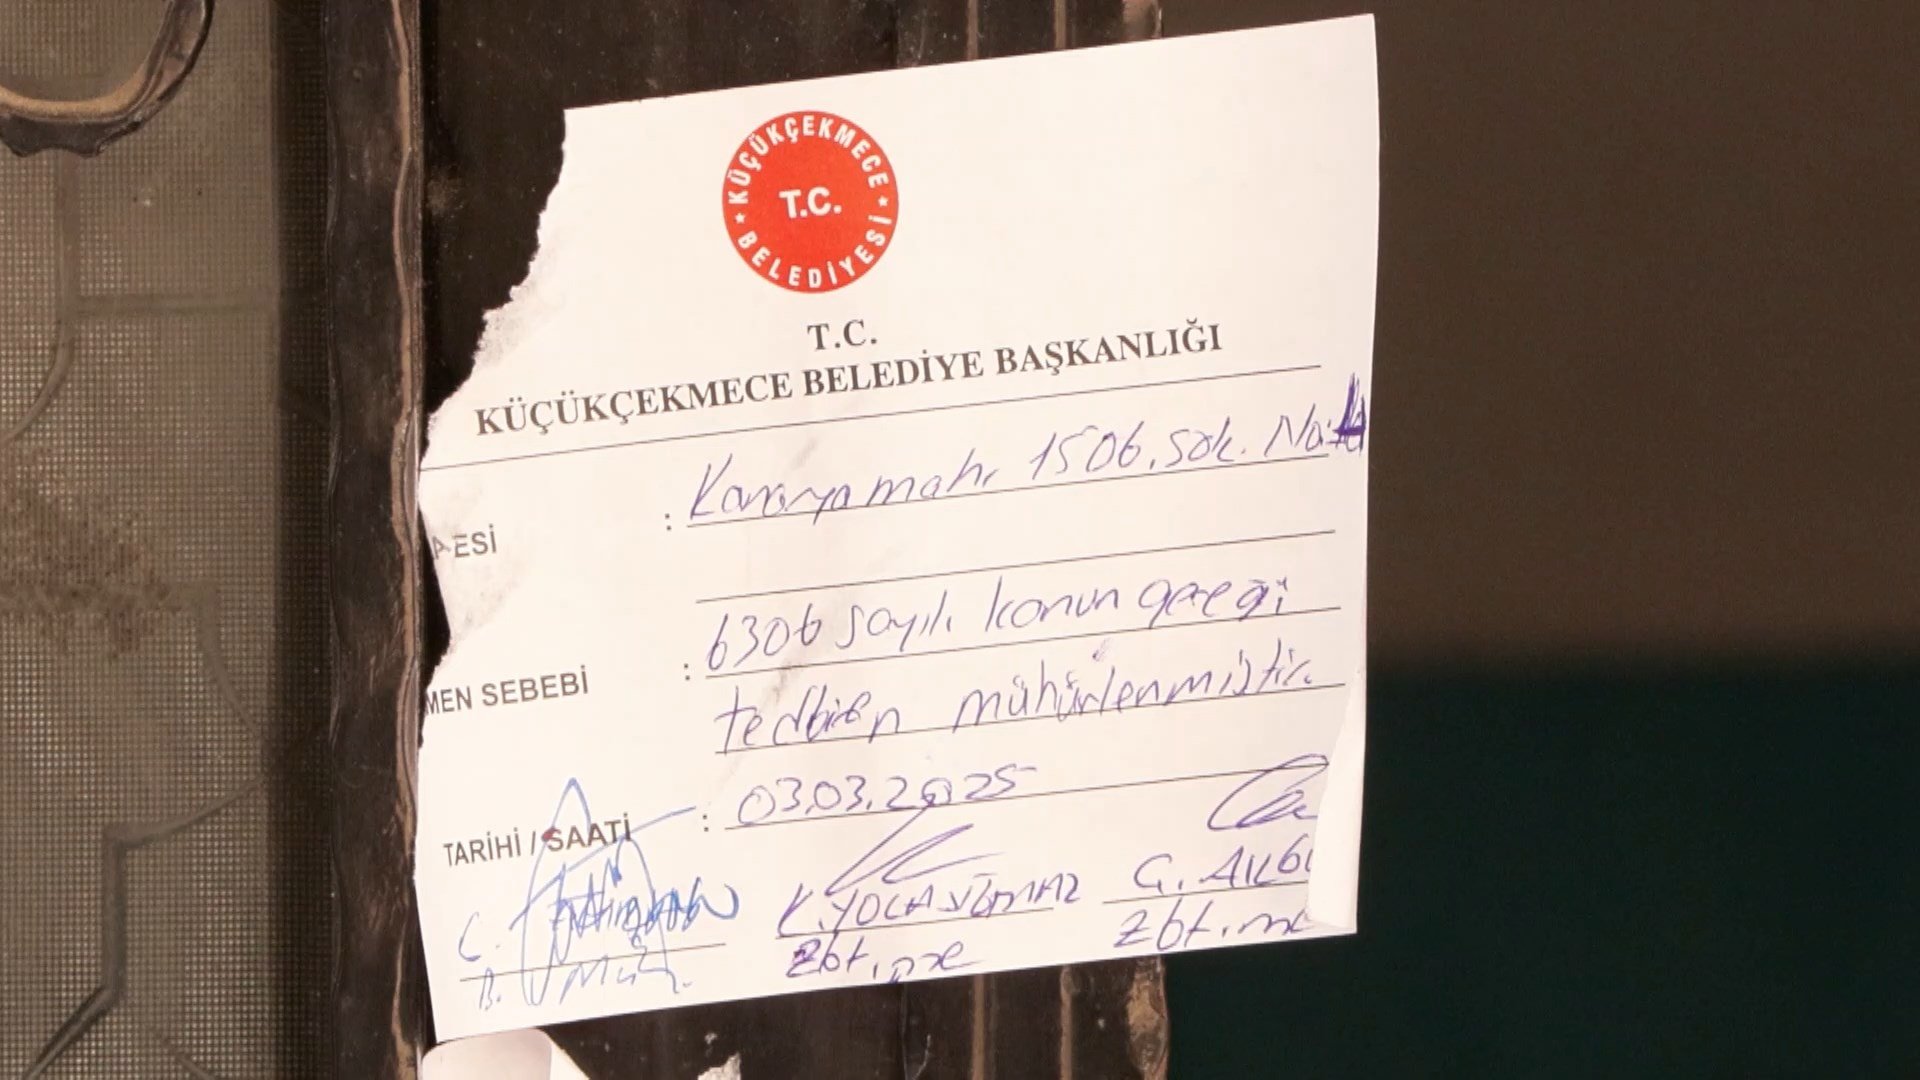 KÜÇÜKÇEKMECE
T.C.
BELEDİYESİ
T.C.
KÜÇÜKÇEKMECE BELEDİYE BAŞKANLIĞI
ESİ : Kanarya mah. 1506. sok. No:
MEN SEBEBİ : 6306 sayılı kanun gereği
tedbiren mühürlenmiştir.
TARİHİ / SAATİ : 03.03.2025
C.
K. YOCA YILMAZ
Ç.
Zbt.
Zbt.